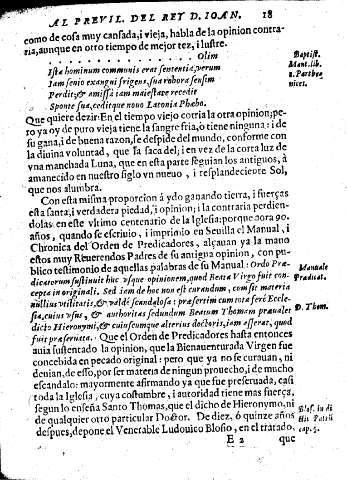 AL PREVIL. DEL REY D. IOAN. 18
como de cosa muy cansada, i vieja, habla de la opinion contra-
ria, aunque en otro tiempo de mejor tez, i lustre.
. . . . . . . . . . . . . . . . . . . Olim
Ista hominum communis erat sententia, verum
Iam senio exangui frigens, sua robora sensim
Perdit; & amissa iam maiestate recedit
Sponte sua, ceditque nouo Latonia Phœbo.
Baptist.
Mant. lib.
1. Parthe
nices.
Que quiere dezir: En el tiempo viejo corria la otra opinion; pe-
ro ya oy de puro vieja tiene la sangre fria, o tiene ninguna: i de
su gana, i de buena razon, se despide del mundo, conforme con
la diuina voluntad, que la saca del; i en vez de la corta luz de
vna manchada Luna, que en esta parte seguian los antiguos, à
amanecido en nuestro siglo vn nueuo, i resplandeciente Sol,
que nos alumbra.
Con esta misma proporcion à ydo ganando tierra, i fuerças
esta santa, i verdadera piedad, i opinion; i la contraria perdien-
dolas: en este vltimo centenario de la Iglesia: porque aora 90.
años, quando se escriuio, i imprimio en Seuilla el Manual, i
Chronica del Orden de Predicadores, alçauan ya la mano
estos muy Reuerendos Padres de su antigua opinion, con pu-
blico testimonio de aquellas palabras de su Manual: Ordo Præ-
dicatorum sustinuit huc vsque opinionem, quod Beata Virgo fuit con-
cepta in originali. Sed iam de hoc non est curandum, cum sit materia
nullius vtilitatis, & valde scandalosa: præsertim cum tota ferè Eccle-
sia, cuius vsus, & authoritas secundum Beatum Thomam præualet
dicto Hieronymi, & cuiuscumque alterius doctoris, iam asserat, quod
fuit præseruata. Que el Orden de Predicadores hasta entonces
Manuale
Prædicat.
D. Thom.
auia sustentado la opinion, que la Bienauenturada Virgen fue
concebida en pecado original: pero que ya no se curauan, ni
deuian, de esso, por ser materia de ningun prouecho, i de mucho
escandalo: mayormente afirmando ya que fue preseruada, casi
toda la Iglesia, cuya costumbre, i autoridad tiene mas fuerça,
segun lo enseña Santo Thomas, que el dicho de Hieronymo, ni
de qualquier otro particular Doctor. De diez, ò quinze años
despues, depone el Venerable Ludouico Blosio, en el tratado,
Blos. in di
cap. 5.
E 2 que